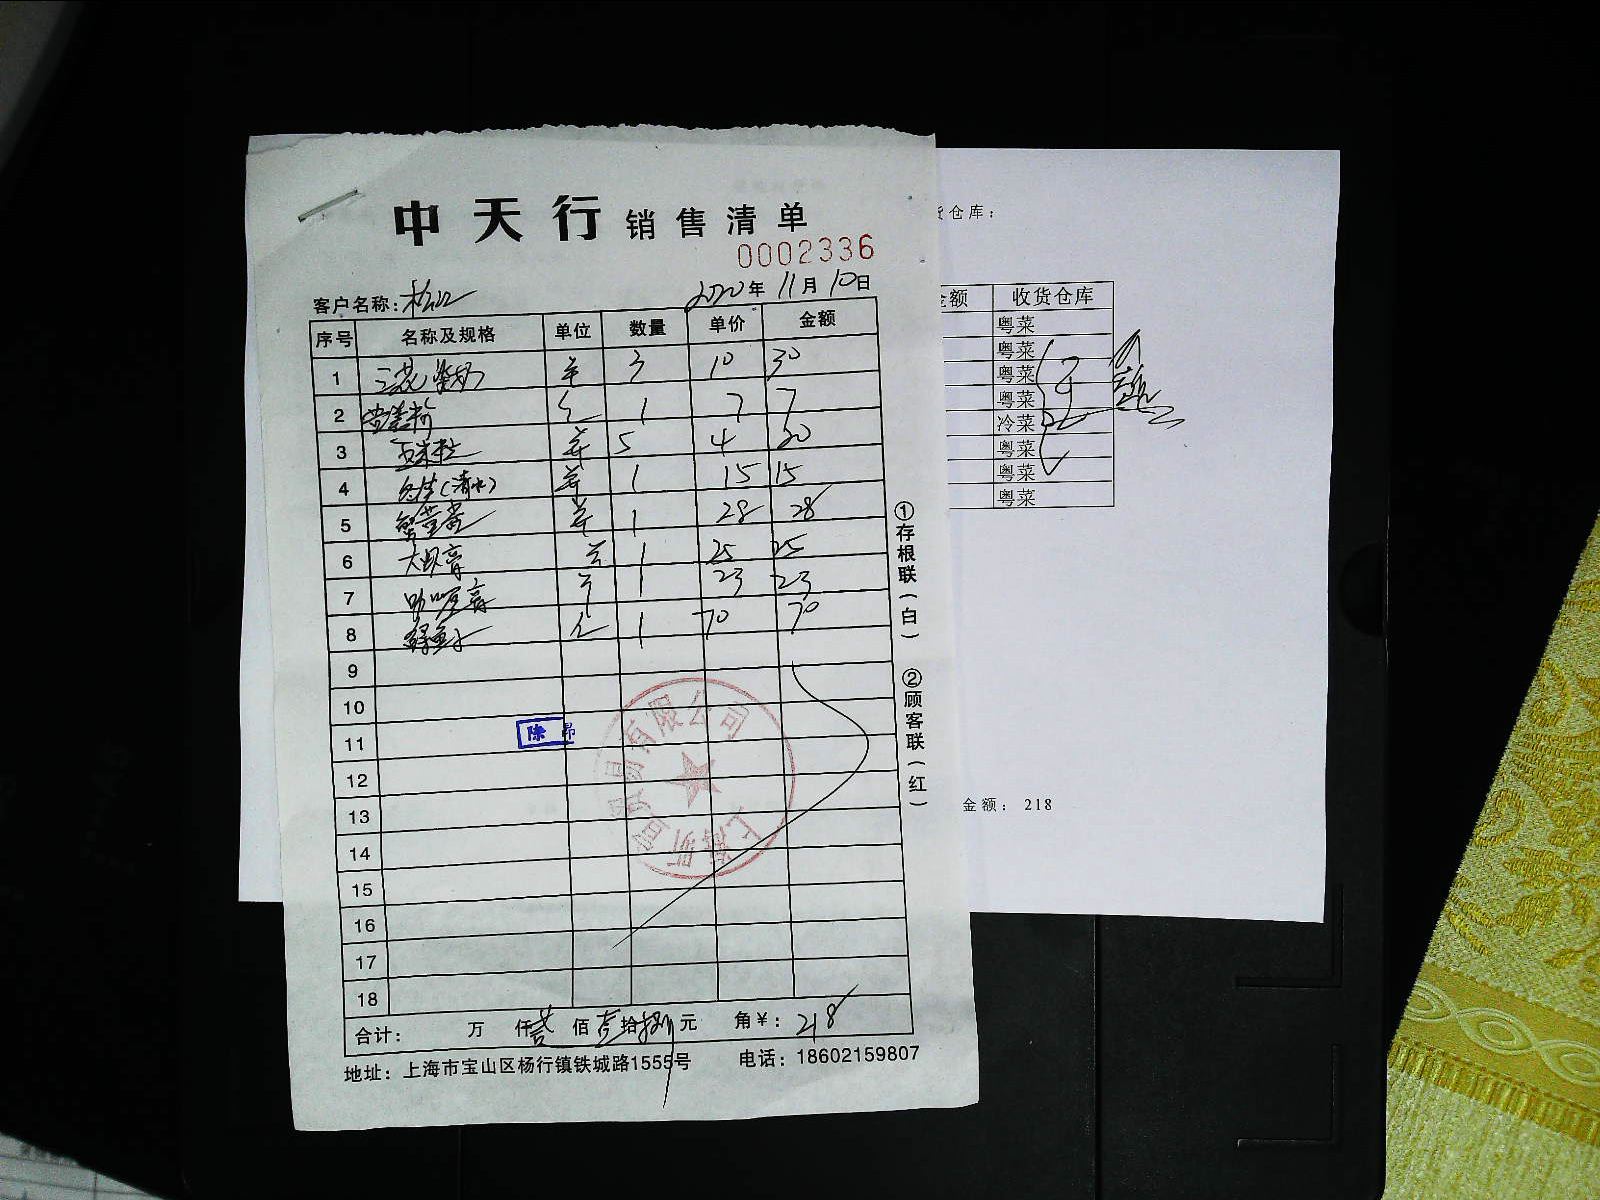 中天行 销售清单
0002336
客户名称: 松江 2020年 11月 10日
序号 名称及规格 单位 数量 单价 金额
1 三花淡奶 3 10 30
2 1 7 7
3 玉米粒 5 4 20
4 冬笋(清水) 1 15 15
5 蟹黄酱 1 28 28
6 1 25 25
7 咖喱膏 1 23 23
8 1 70 70
9
10
11
12
13
14
15
16
17
18
合计: 万 仟贰佰壹拾捌元 角¥: 218
地址: 上海市宝山区杨行镇铁城路1555号 电话: 18602159807
①存根联(白) ②顾客联(红)
有限公司
上海
仓库:
金额 收货仓库
粤菜
粤菜
粤菜
粤菜
冷菜
粤菜
粤菜
粤菜
金额: 218